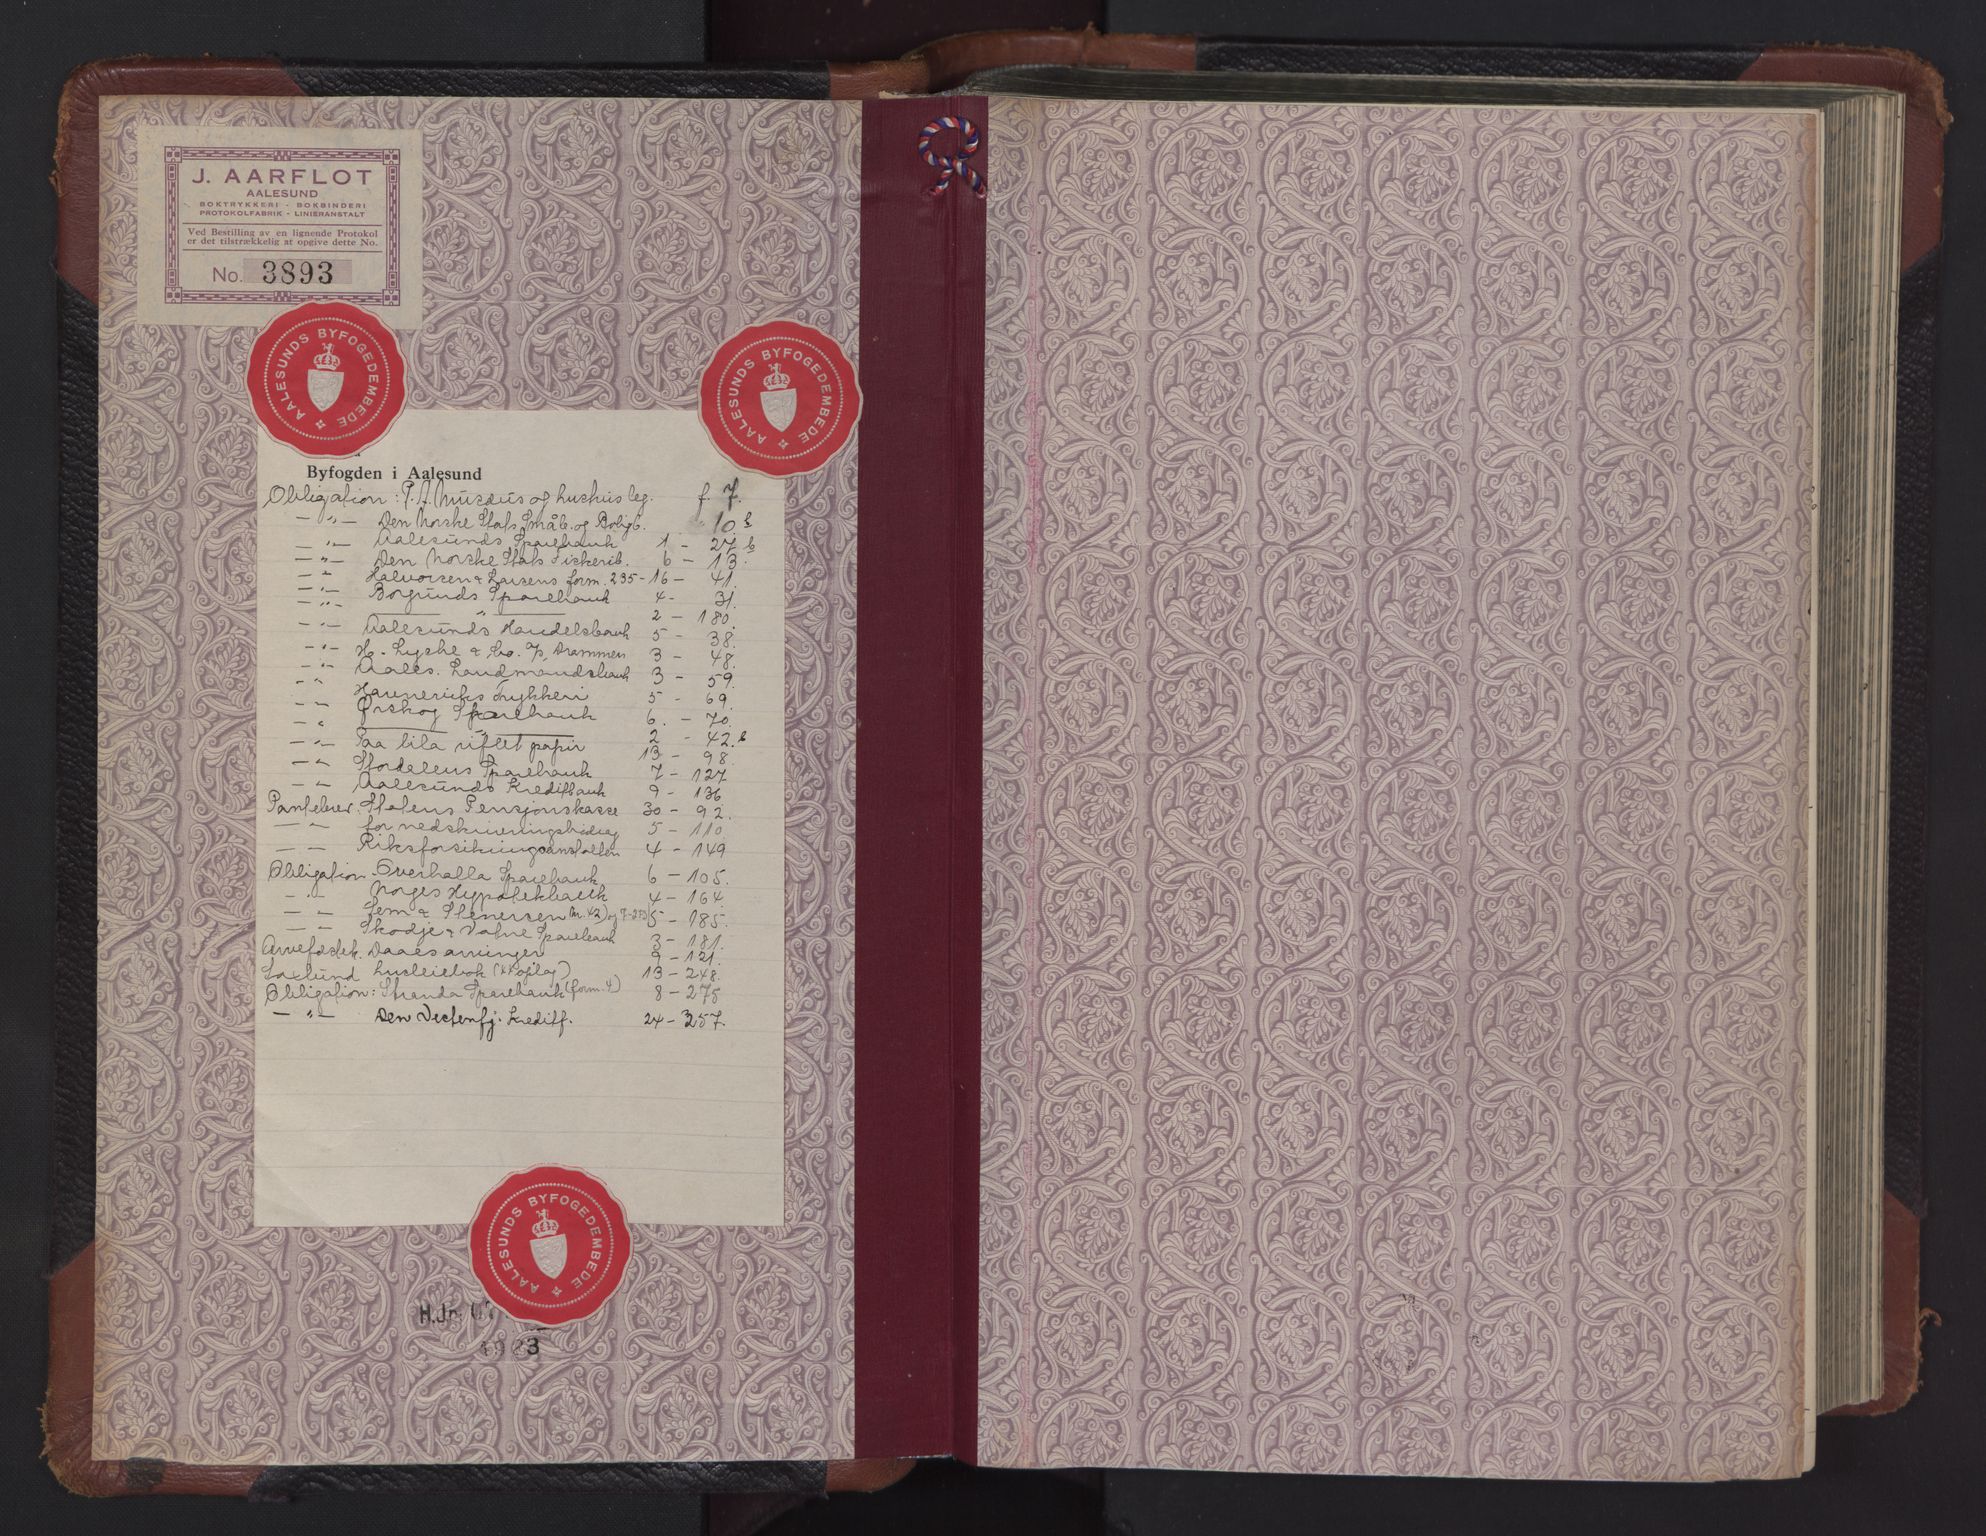 J. AARFLOT
AALESUND
BOKTRYKKERI - BOKBINDERI
PROTOKOLFABRIK - LINIERANSTALT
Ved Bestilling av en lignende Protokol
er det tilstrækkelig at opgive dette No.
No. 3893
AALESUNDS BYFOGEDEMBEDE
AALESUNDS BYFOGEDEMBEDE
Byfogden i Aalesund
Obligation: P. A. og hushusleg. f. 7.
-"- Den Norske Stats Småb. og Boligb. 10 b
-"- Aalesunds Sparebank 1 - 27 b
-"- Den Norske Stats Fiskerib. 6 - 13.
-"- Halvorsen & Larsens form. 235 - 16 - 41.
-"- Borgunds Sparebank 4 - 31.
-"- 2 - 180.
-"- Aalesunds Handelsbank 5 - 38.
-"- H. & Co. Drammen 3 - 48.
-"- Aales. Landmandsbank 3 - 59.
-"- trykkeri 5 - 69.
-"- Ørskog Sparebank 6. - 70.
-"- 2 - 42. b
-"- Paa lila riflet papir 13 - 98.
-"- Stordalens Sparebank 7 - 127
-"- Aalesunds Kreditbank 9 - 136
Pantebrev. Statens Pensjonskasse 30 - 92.
-"- for nedskrivningsbidrag 5 - 110.
-"- Riksforsikringsanstalten 4 - 149
Obligation Overhalla Sparebank 6 - 105.
-"- Norges Hypotekbank 4 - 164.
-"- Sem & Stenersen (nr. 42) og 5 - 185.
-"- Skodje & Vatne Sparebank 3 - 181.
Arvefæstek. Daaesamningen 9 - 121.
husleiebok 13 - 248.
Obligation: Stranda Sparebank (form. 4) 8 - 275
-"- Den Vestenfj. Kreditf. 24 - 357.
AALESUNDS BYFOGEDEMBEDE
H.Jn.